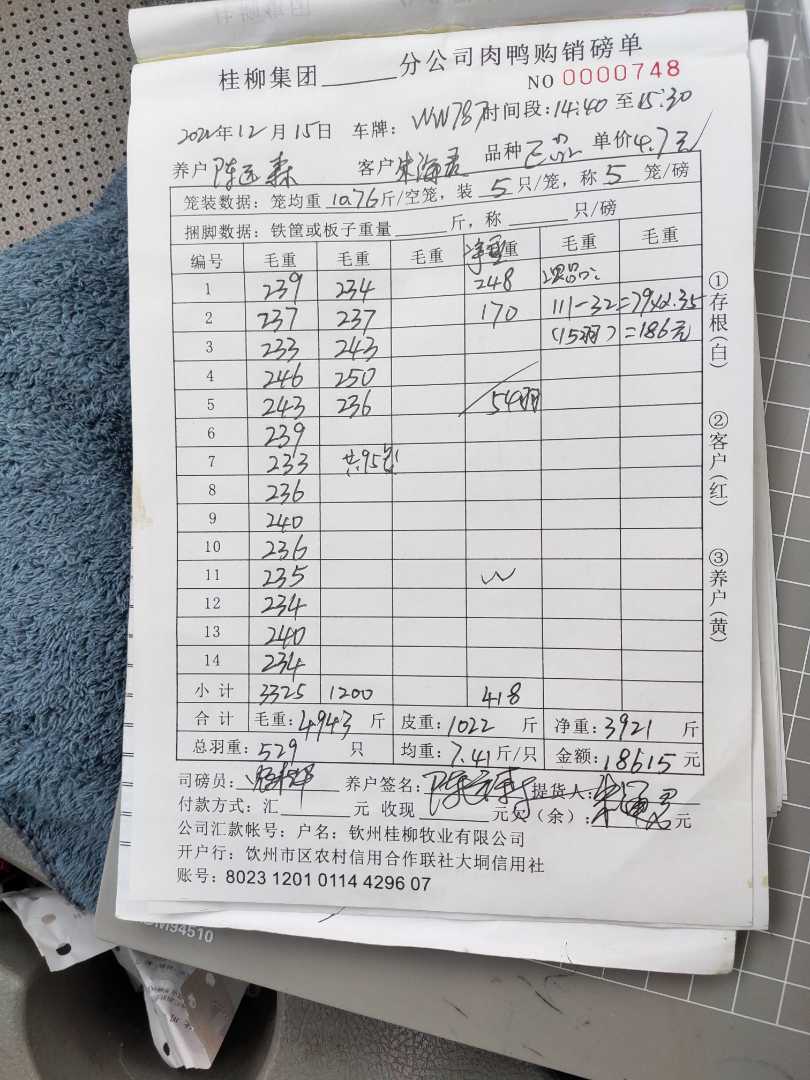 桂柳集团______分公司肉鸭购销磅单
NO 0000748
2022年12月15日 车牌：WW787 时间段：14:40 至 15:30
养户 陈 森 客户 朱海君 品种 正品 单价 4.7元
笼装数据：笼均重 10.76 斤/空笼，装 5 只/笼，称 5 笼/磅
捆脚数据：铁筐或板子重量______斤，称______只/磅
编号 毛重 毛重 毛重 净重 毛重 毛重
1 239 234 248
2 237 237 170 111-32=79×2.35
3 233 243 (15羽)=186元
4 246 250
5 243 236 54羽
6 239
7 233 共95笼
8 236
9 240
10 236
11 235
12 234
13 240
14 234
小计 3325 1200 418
合计 毛重：4943 斤 皮重：1022 斤 净重：3921 斤
总羽重：529 只 均重：7.41 斤/只 金额：18615 元
司磅员： 养户签名：陈 森 提货人：朱海君
付款方式：汇______元 收现______元欠（余）：______元
公司汇款帐号：户名：钦州桂柳牧业有限公司
开户行：饮州市区农村信用合作联社大垌信用社
账号：8023 1201 0114 4296 07
①存根(白)
②客户(红)
③养户(黄)
M94510